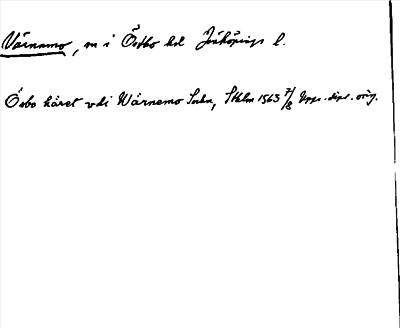 Värnamo, sn i Östbo hd Jönköpings l.
Ösbo häret vdi Wärnemo Sockn, Sthlm 1563 7/8 Upps. dipl. orig.